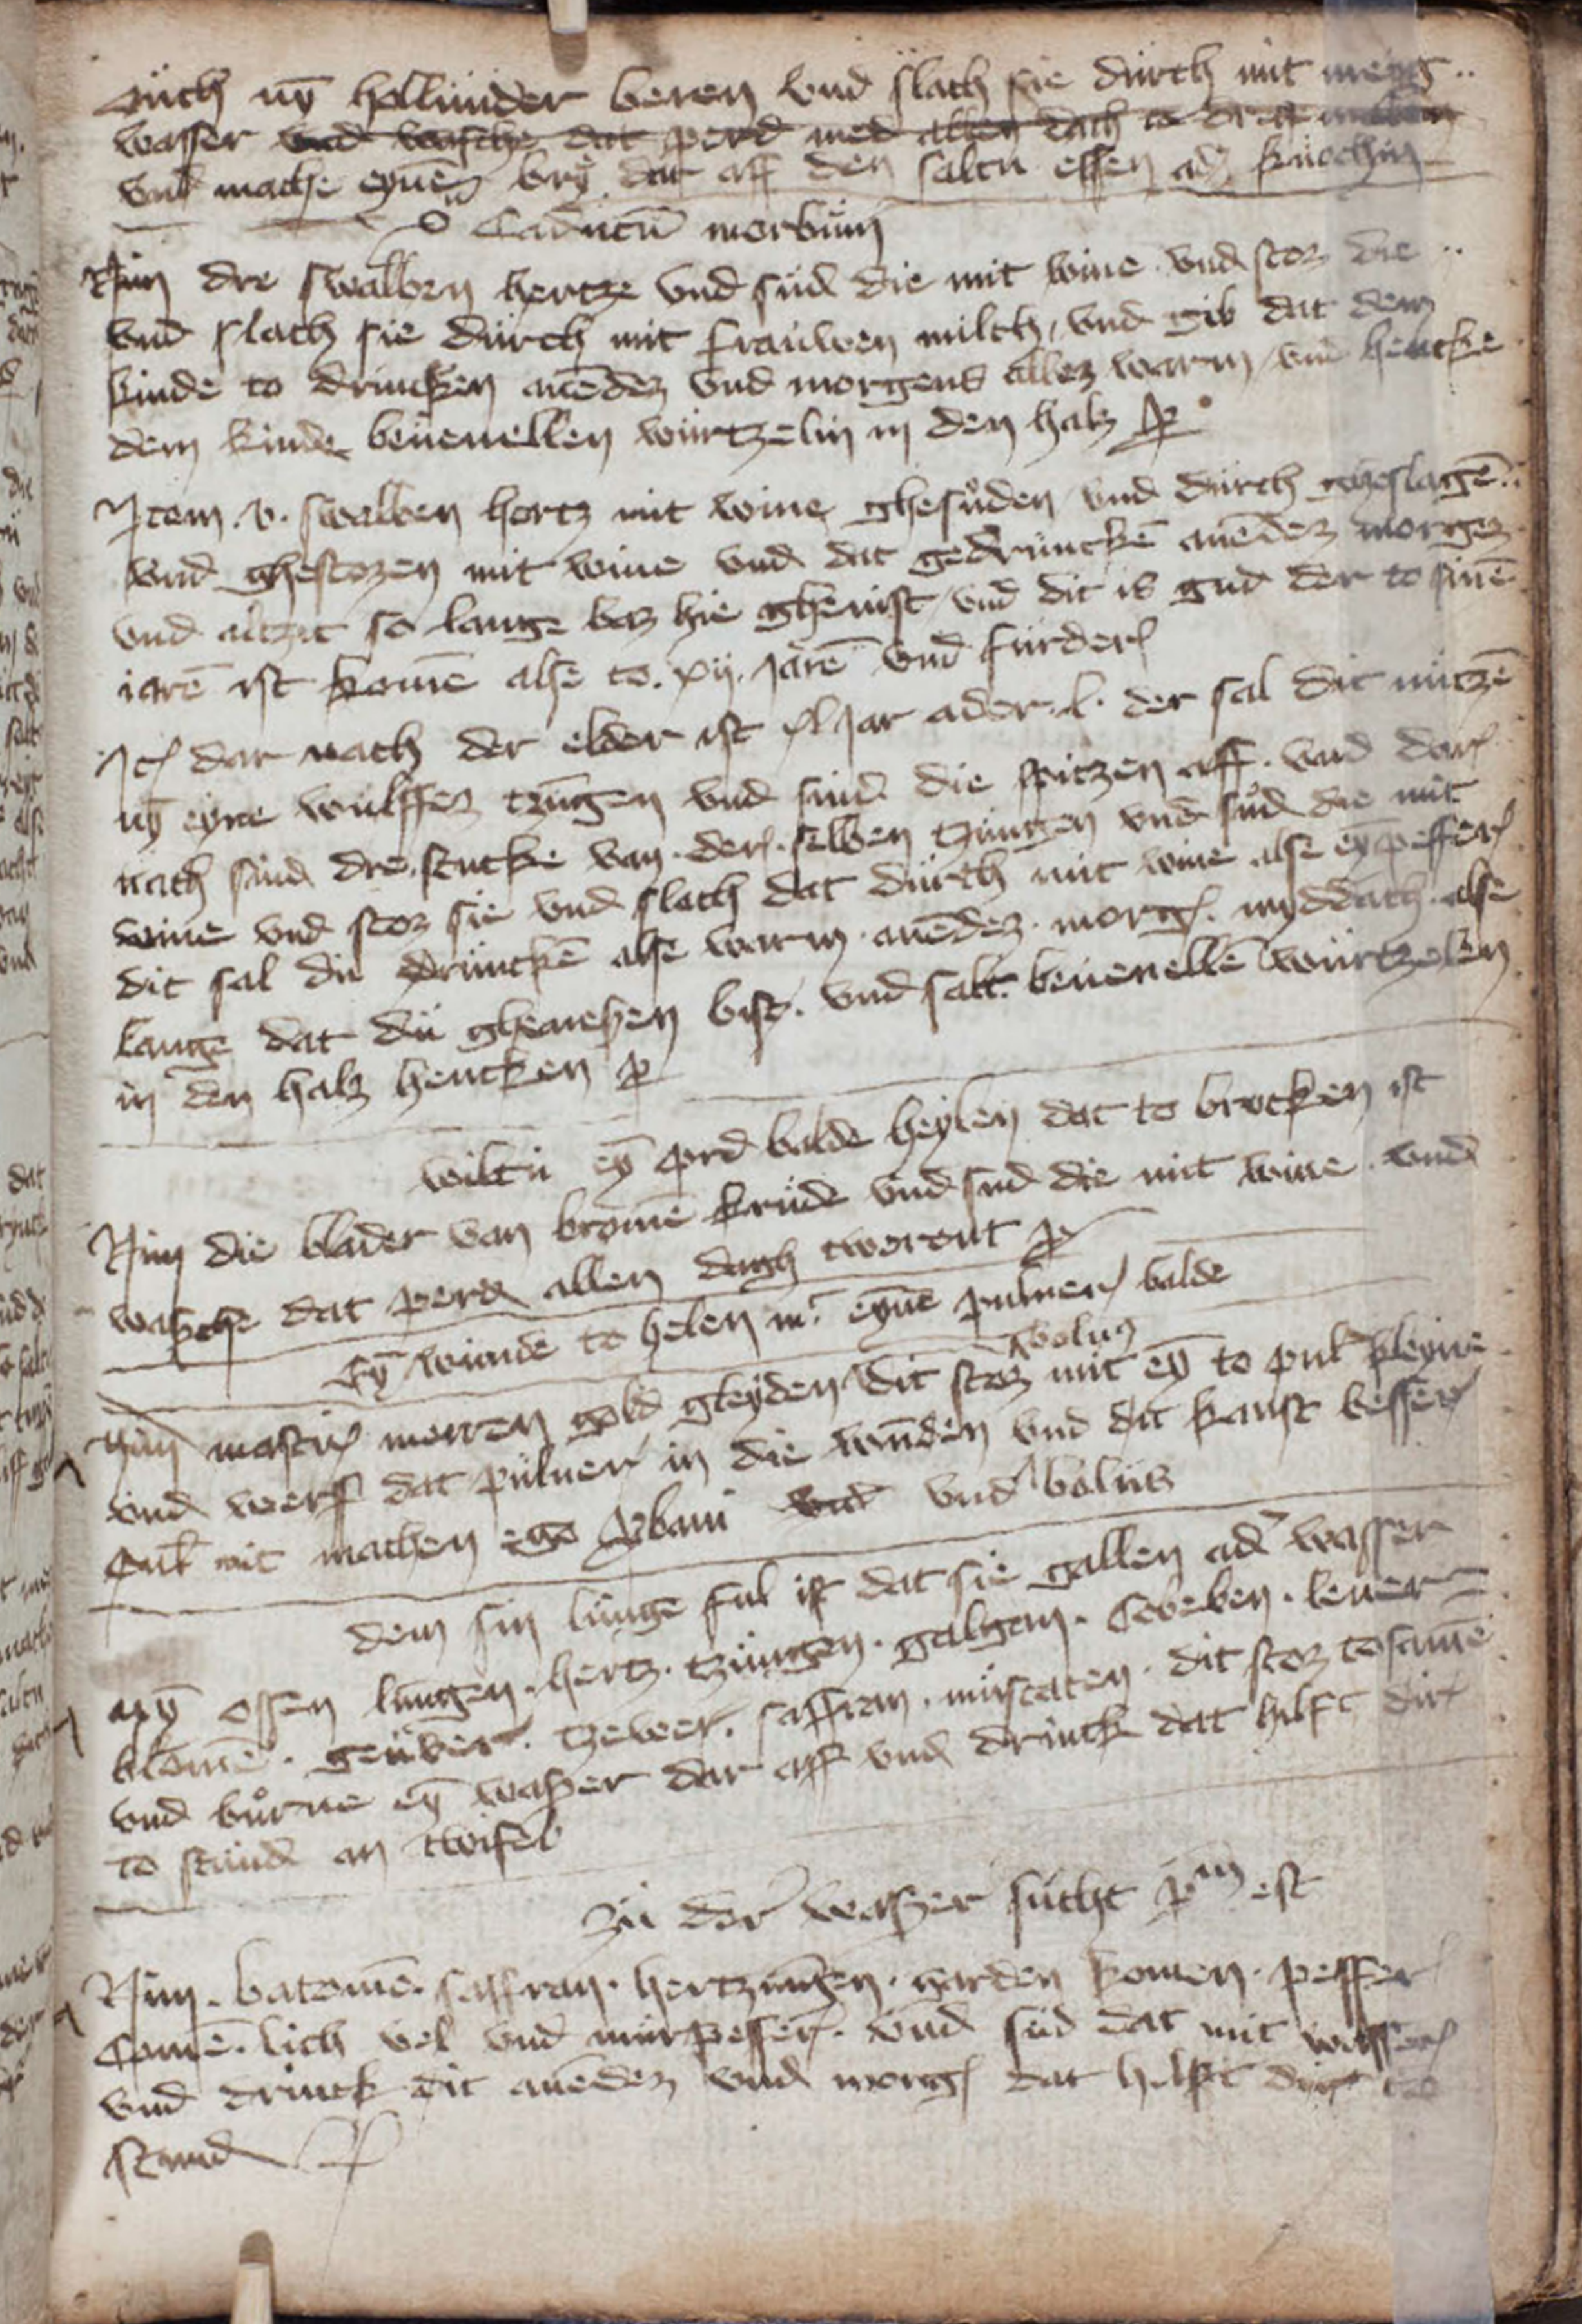 Auch nȳ hollunder beren vnd slach sie durch mit meng
wasser vnd wasche dat perd med allen dach to
vnd mache eynē bry dar aff den saltu essen adʼ kuochin
Caducū morbum
Nim dre swalben hertze vnd sud die mit wine vnd stoz die
vnd slach sie durch mit frauwen milch, vnd gib dat dem
kinde to drincken auēdez vnd morgens allez warm vnd hencke
dem kinde beuenellen wurtzelin in den halz
Item .v. swalben hertz mit wine ghesuden vnd durch gheslagē
vnd ghestozen mit wine vnd dat gedruncke auēdez morgez
vnd altzit so lange baz hie ghenist vnd dit is gud der to sinē
iarē ist komē alse to .xij. jarē vnd furder
It dar nach der elder ist xl jar ader .l. der sal dit nutzē
nȳ eyne wulffez tzungen vnd snid die spitzen aff. vnd dar
nach snid dre stucke van der selben tzungen vnd sud die mit
wine vnd stoz sie vnd slach dat durch mit wine alse eȳ peffer
dit sal du drinckē alse warm auēdez morg. myddach alse
lange dat du ghenesen bist. vnd salt beuenellē wurtzelen
in den halz hencken
wiltu eȳ perd balde heylen dat to brocken ist
Nim die blader van bromē krude vnd sud die mit wine vnd
wasche dat perd allen dagh twerent
Eȳ wunde to helen mʼ eynē puluer balde
bolus
Nim masticʼ mirren gold gleyden dit stoz mit eȳ to pulʼ kleyne
vnd werf dat puluer in die wunden vnd dit kanst besser
nit machen ego vnd bolus
dem sin lunge ful ist dat sie gallen adʼ wasser
nȳ ossen lungen. hertz. tzungen. galgan. Cobeben. leuer
blomē. tzewer. saffran. muscaten. dit stoz tosamē
vnd burne eȳ wasser dar aff vnd drinck dat hilft dir
to stund an twifel
Zu der wasser sucht est
Nim. batonie. saffran. hertzungen. komen. peffer
Comē. lich vel vnd murpeffer. vnd sud dat mit wasser
vnd drinck dit auēdez vnd morg dat hilft dir to
stund